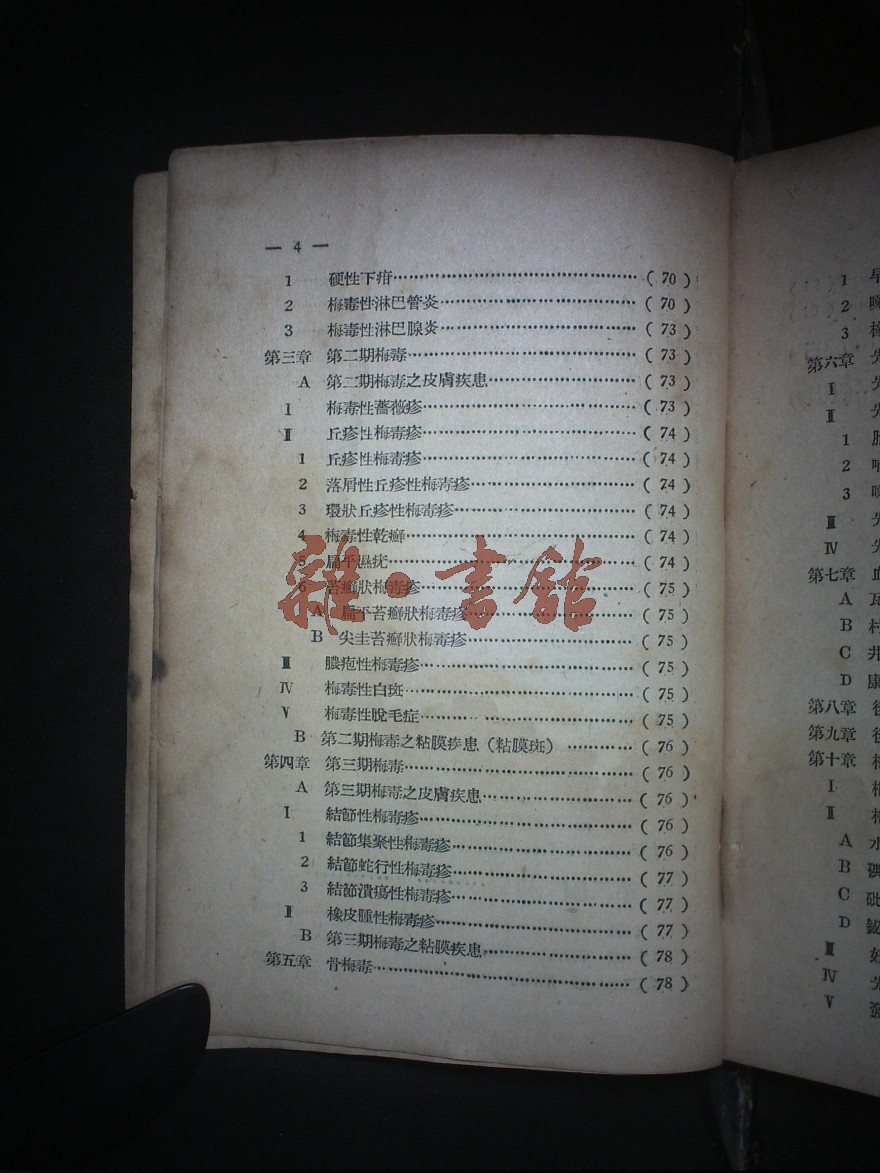 — 4 —
1 硬性下疳 (70)
2 梅毒性淋巴管炎 (70)
3 梅毒性淋巴腺炎 (73)
第三章 第二期梅毒 (73)
A 第二期梅毒之皮膚疾患 (73)
I 梅毒性薔薇疹 (73)
II 丘疹性梅毒疹 (74)
1 丘疹性梅毒疹 (74)
2 落屑性丘疹性梅毒疹 (74)
3 環狀丘疹性梅毒疹 (74)
4 梅毒性乾癬 (74)
5 扁平濕疣 (74)
6 苔癬狀梅毒疹 (75)
A 扁平苔癬狀梅毒疹 (75)
B 尖圭苔癬狀梅毒疹 (75)
III 膿疱性梅毒疹 (75)
IV 梅毒性白斑 (75)
V 梅毒性脫毛症 (75)
B 第二期梅毒之粘膜疾患（粘膜斑） (76)
第四章 第三期梅毒 (76)
A 第三期梅毒之皮膚疾患 (76)
I 結節性梅毒疹 (76)
1 結節集聚性梅毒疹 (76)
2 結節蛇行性梅毒疹 (77)
3 結節潰瘍性梅毒疹 (77)
II 橡皮腫性梅毒疹 (77)
B 第三期梅毒之粘膜疾患 (78)
第五章 骨梅毒 (78)
雜·書館
1
2
3
第六章
I
II
1
2
3
III
IV
第七章 血
A 瓦
B 村
C 井
D 康
第八章
第九章
第十章
I
II
A 水
B 碘
C 砒
D 鉍
III
IV
V